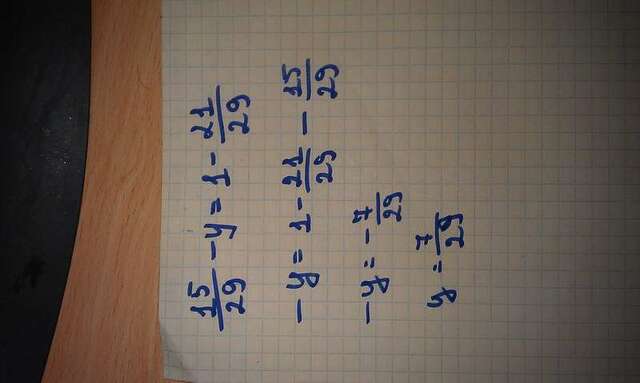 15/29 - y = 1 - 21/29
- y = 1 - 21/29 - 15/29
- y = - 7/29
y = 7/29